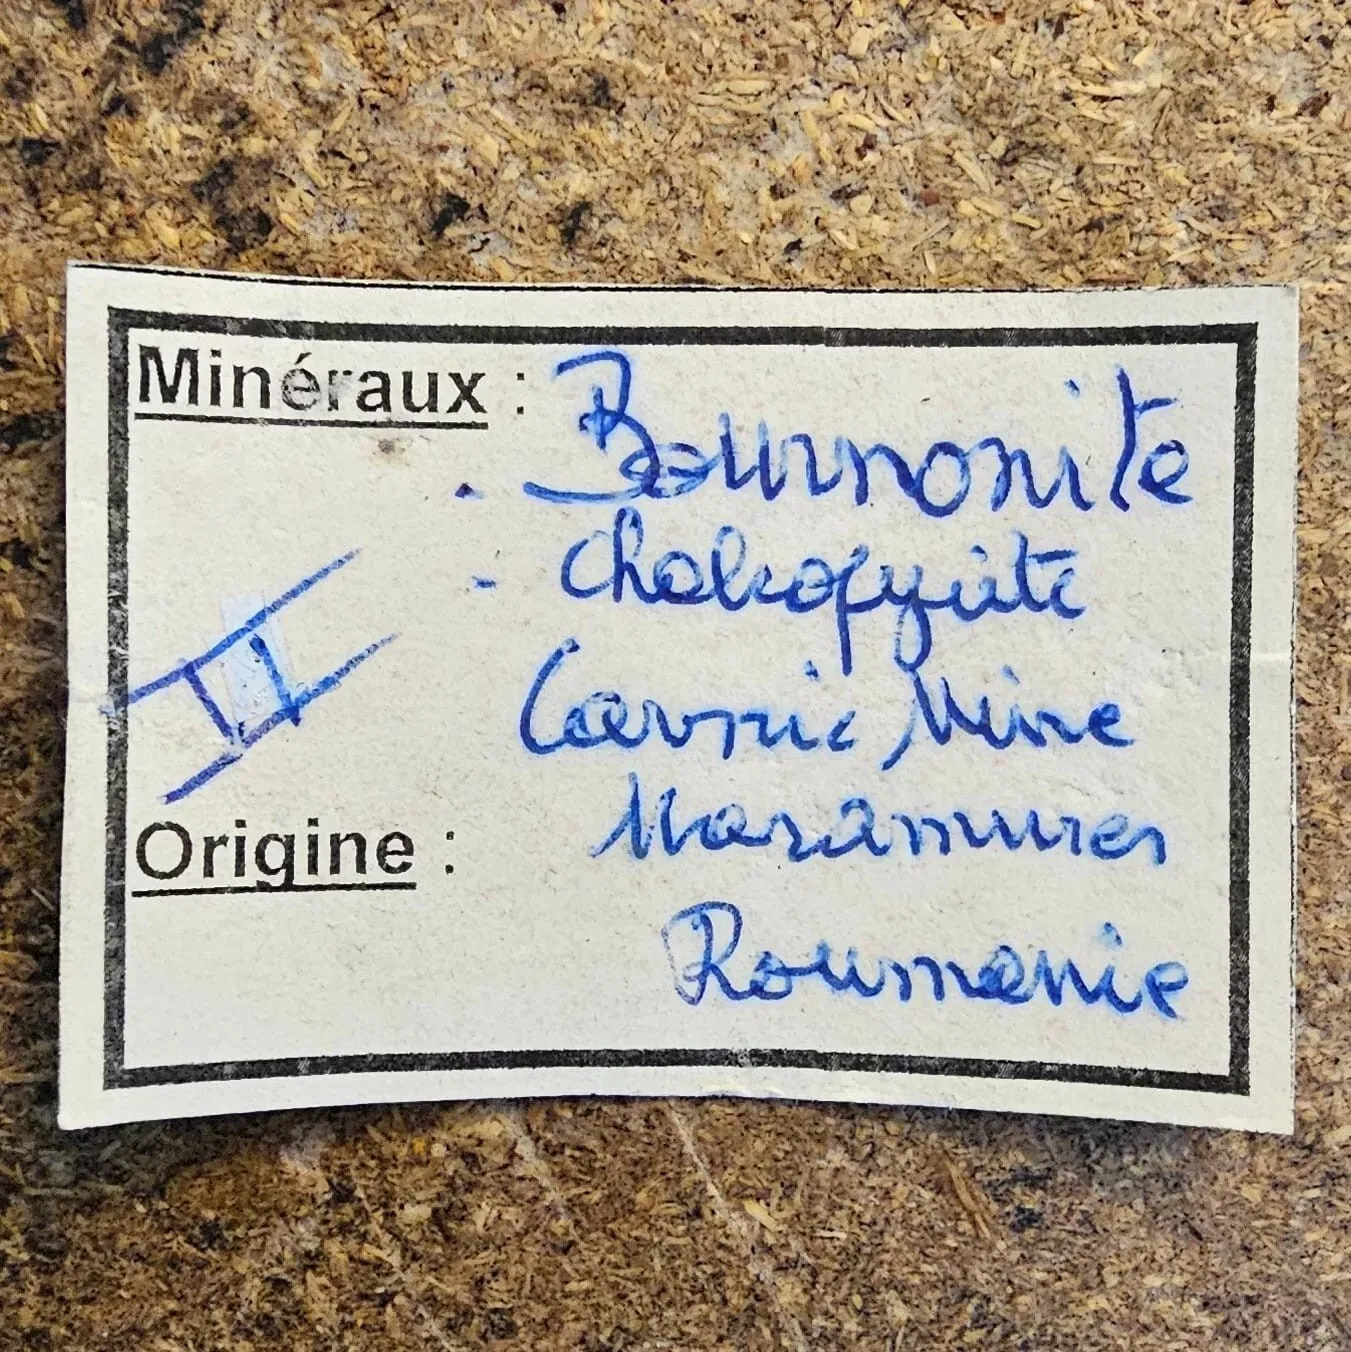 Minéraux :
- Bournonite
- Chalcopyrite
Cavnic Mine
Maramures
II
Origine :
Roumanie